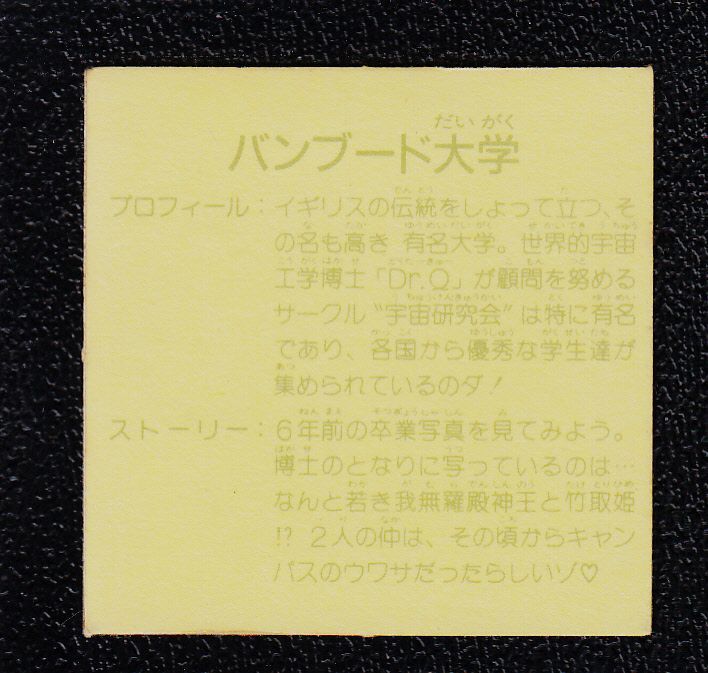 バンブード大学
プロフィール：イギリスの伝統をしょって立つ、そ
の名も高き 有名大学。世界的宇宙
工学博士「Dr.Q」が顧問を努める
サークル〝宇宙研究会〟は特に有名
であり、各国から優秀な学生達が
集められているのダ！
ストーリー：6年前の卒業写真を見てみよう。
博士のとなりに写っているのは…
なんと若き我無羅殿神王と竹取姫
!? 2人の仲は、その頃からキャン
パスのウワサだったらしいゾ♡